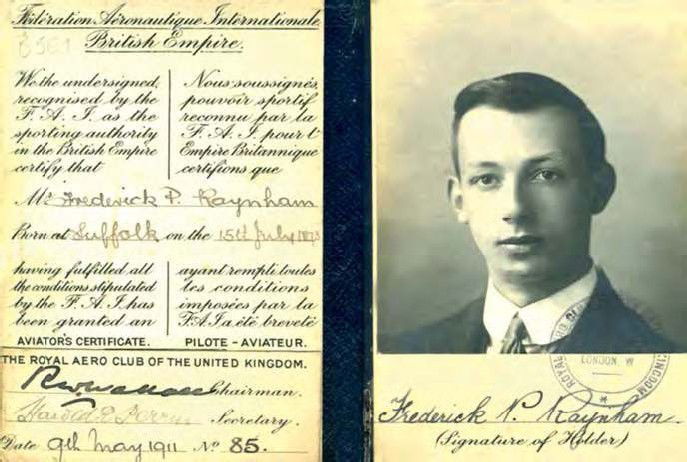 Fédération Aéronautique Internationale
British Empire.
We the undersigned,
recognised by the
F. A. I. as the
sporting authority
in the British Empire
certify that
Nous soussignés,
pouvoir sportif
reconnu par la
F. A. I. pour l'
Empire Britannique
certifions que
Mr. Frederick P. Raynham
Born at Suffolk on the 15th July
having fulfilled all
the conditions stipulated
by the F. A. I. has
been granted an
AVIATOR'S CERTIFICATE.
ayant rempli toutes
les conditions
imposées par la
F.A.I. a été breveté
PILOTE - AVIATEUR.
THE ROYAL AERO CLUB OF THE UNITED KINGDOM.
Chairman.
Harold E. Perrin Secretary.
Date 9th May 1911 No 85.
ROYAL
LONDON, W
KINGDOM
Frederick P. Raynham.
(Signature of Holder)